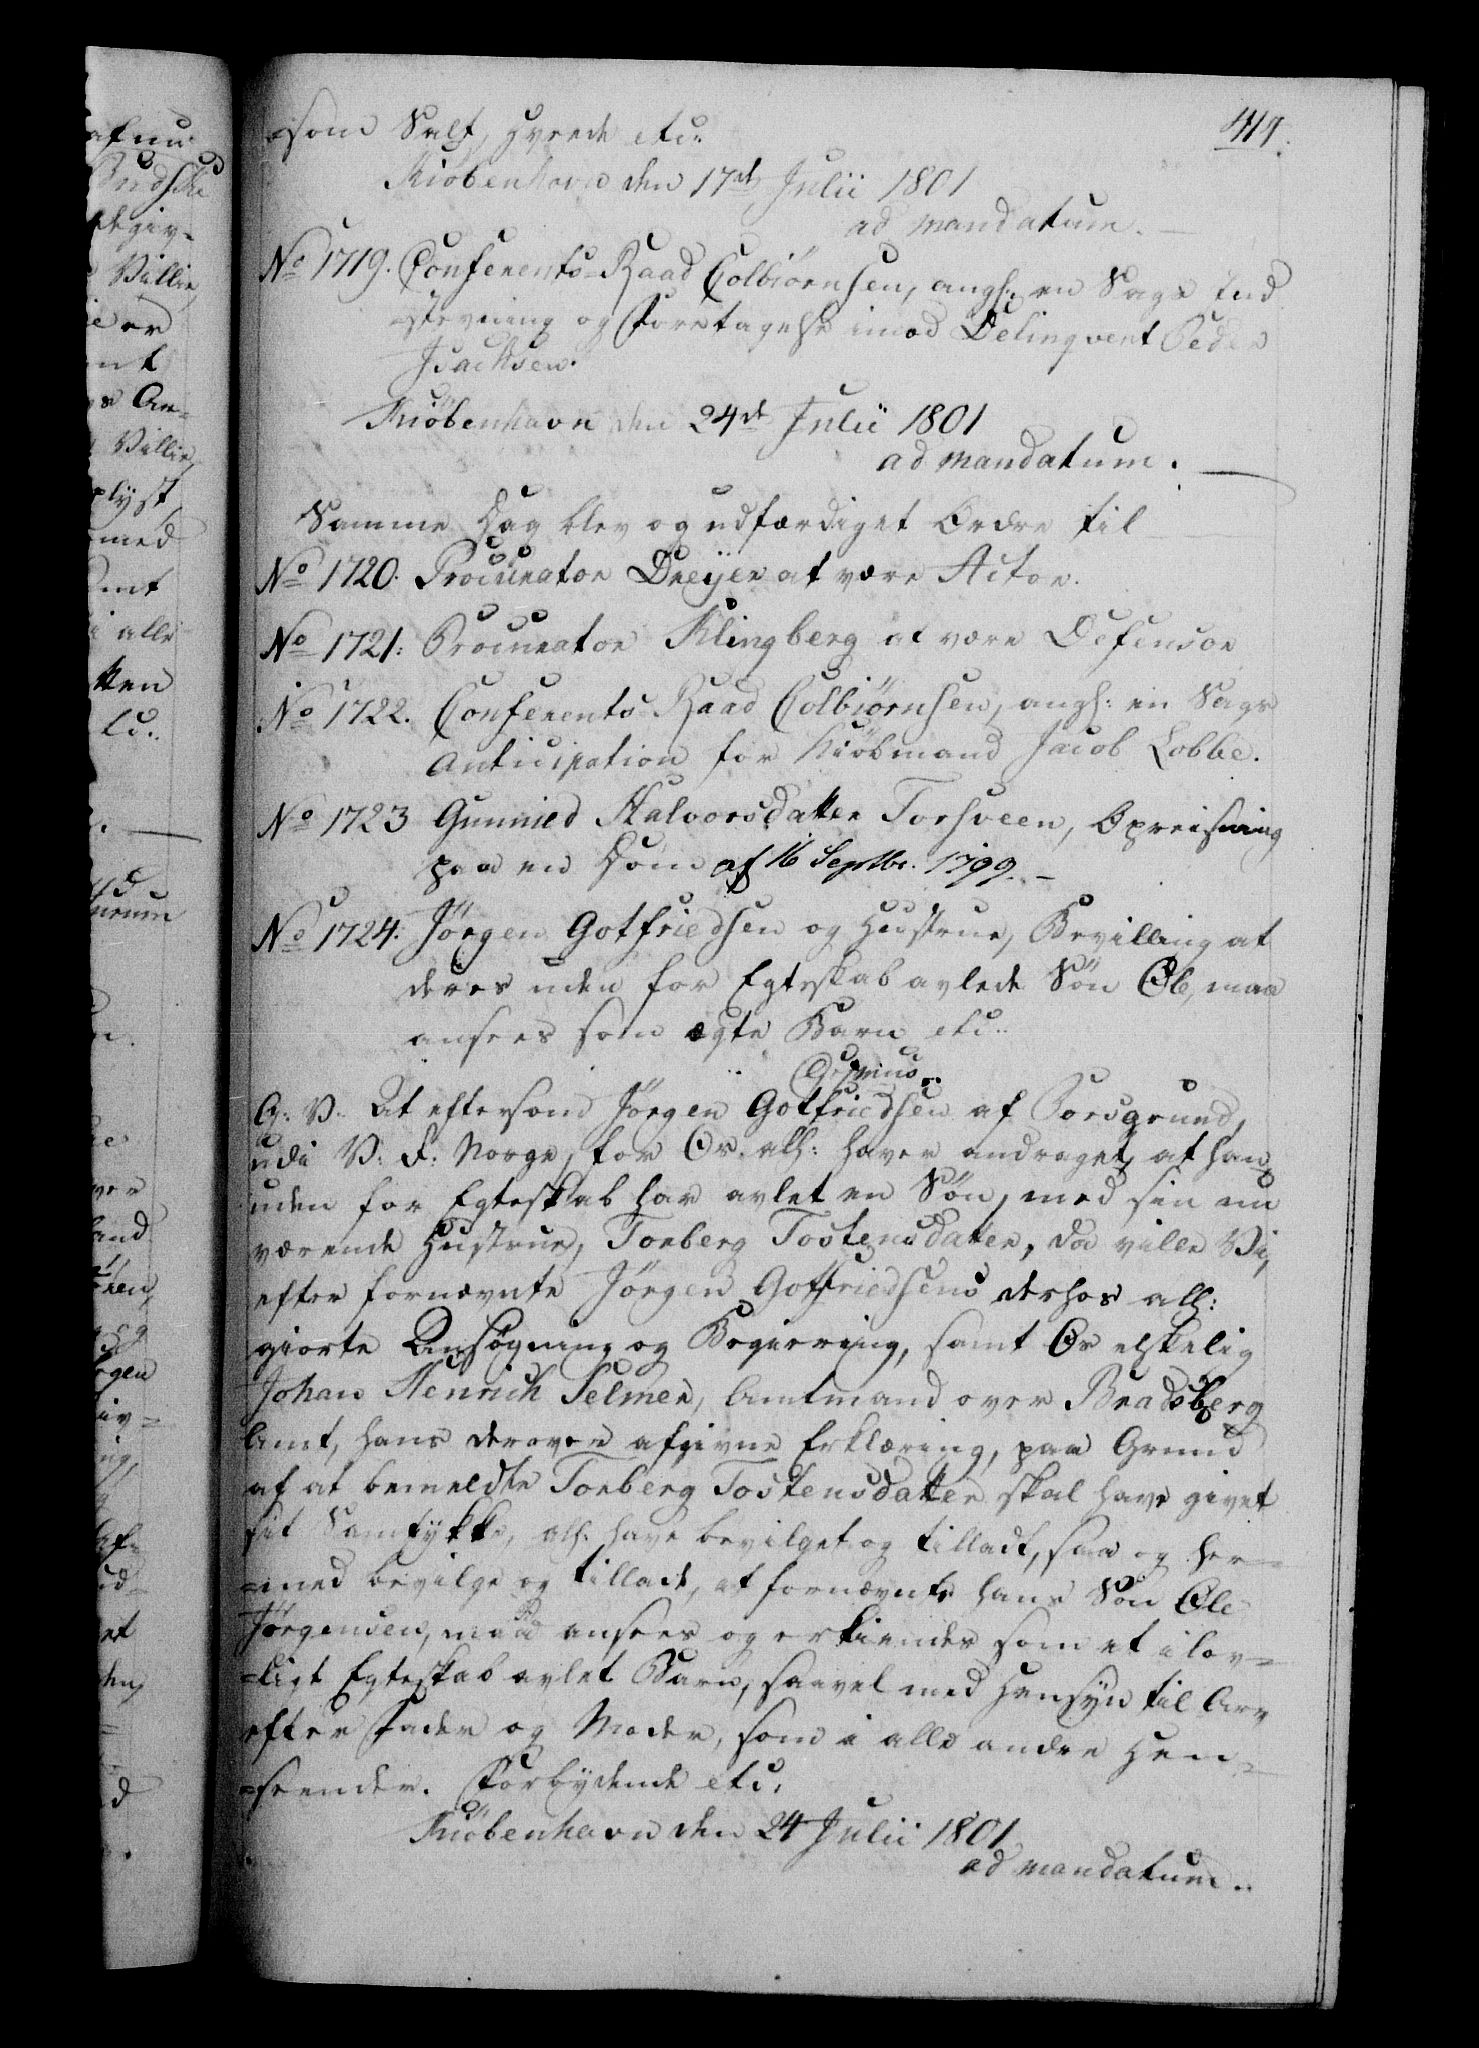 419.
som Salt, Hvede etc:
Kiøbenhavn den 17de Julii 1801
ad mandatum.
No 1719. Conferents-Raad Colbiørnsen, angh: en Sags Ind
stevning og Foretagelse imod Delinqvent Peder
Isachsen.
Kiøbenhavn den 24de Julii 1801
ad mandatum.
Samme Dag blev og udfærdiget Ordre til
No 1720. Procurator Dreijer at være Actor.
No 1721: Procurator Klingberg at være Defensor
No 1722. Conferents Raad Colbiørnsen, angh: en Sags
Anticipation for Kiøbmand Jacob Lobbe.
No 1723 Gunnild Halvorsdatter Torsveen, Opreisning
paa en Dom af 16 Septbr. 1799.
No 1724. Jørgen Gotfriedsen og Hustrue, Bevilling at
deres uden for Egteskab avlede Søn Ole, maa
ansees som ægte Barn etc:
G: V: At eftersom Jørgen Gotfriedsen af Porsgrund,
udi V: R: Norge, for Os allh: haver andraget, at han
uden for Egteskab har avlet en Søn, med sin nu
værende Hustrue, Torberg Tostensdatter, da ville Vi,
efter fornævnte Jørgen Gotfriedsens derhos all:
giorte Ansøgning og Begiering, samt Os elskelig
Johan Henrich Selmer, Amtmand over Bradsberg
Amt, hans derover afgivne Erklæring, paa Grund
af at bemeldte Torberg Tostensdatter skal have givet
sit Samtykke, allh: have bevilget og tilladt, saa og her-
=med bevilge og tillade, at fornævnte hans Søn Ole
Jørgensen, maa ansees og erkiendes som et i lov=
=ligt Egteskab avlet Barn, saavel med Hensyn til Arv
efter Fader og Moder, som i alle andre Hen=
=seender. Forbydende etc:
Kiøbenhavn den 24 Julii 1801
ad mandatum.